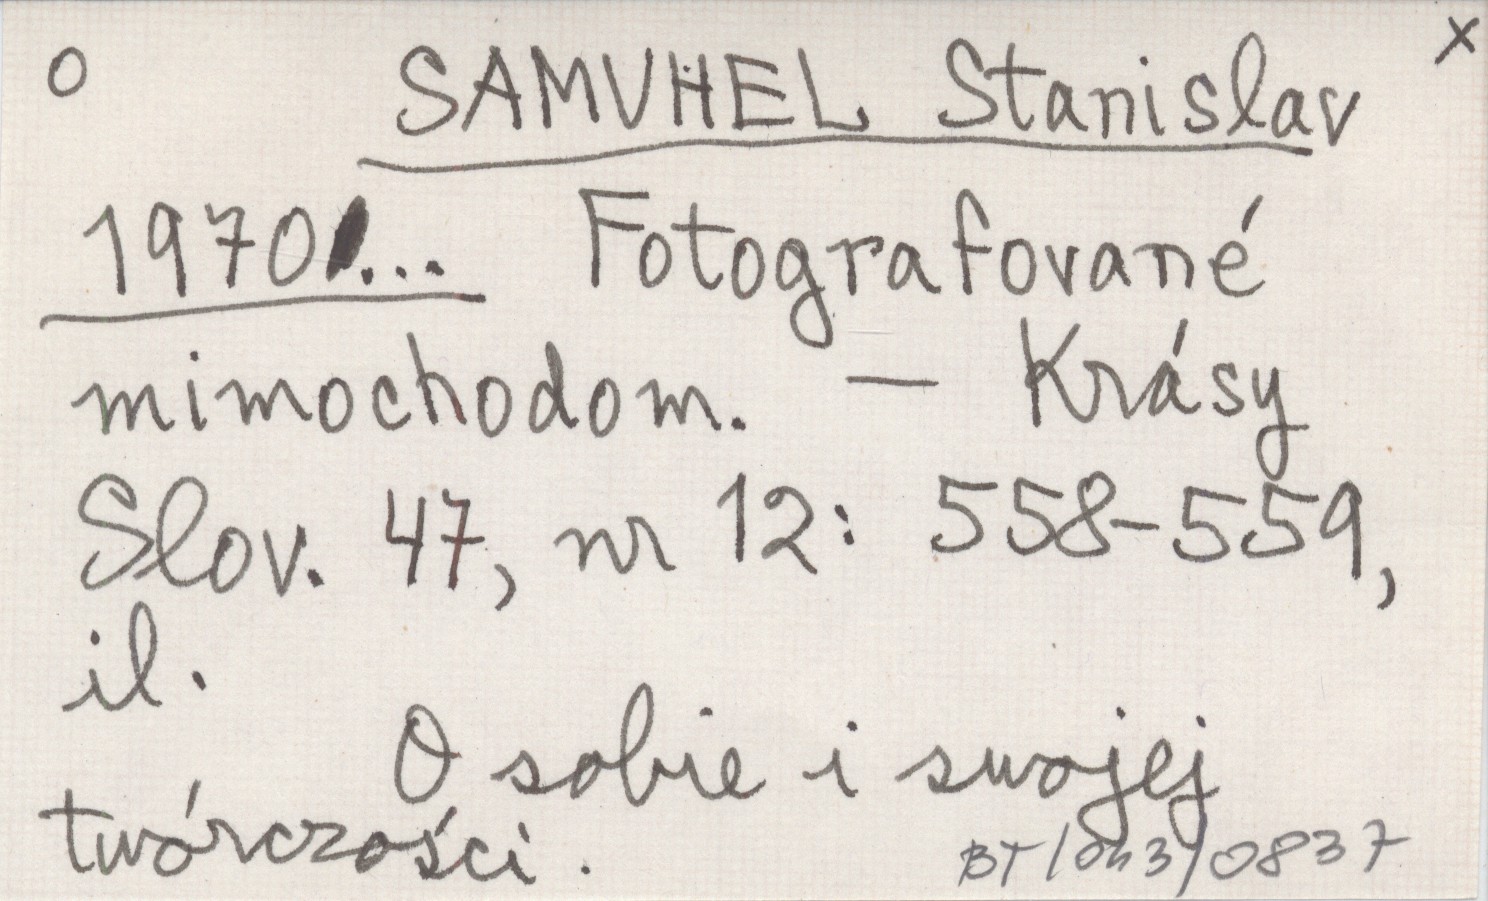 O SAMUHEL Stanislav X
1970... Fotografované
mimochodom. — Krásy
Slov. 47, nr 12: 558-559,
il.
O sobie i swojej
twórczości.